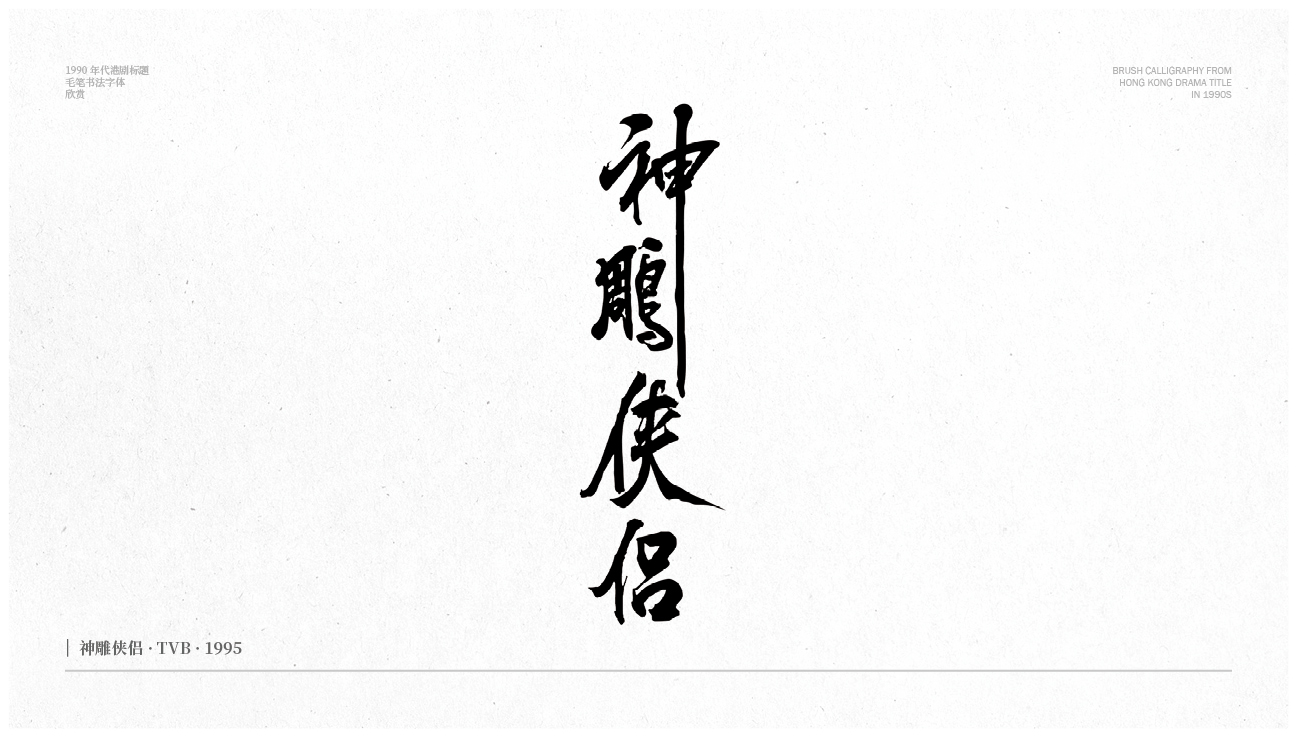 1990 年代港剧标题
毛笔书法字体
欣赏
BRUSH CALLIGRAPHY FROM
HONG KONG DRAMA TITLE
IN 1990S
神鵰侠侣
神雕侠侣 · TVB · 1995